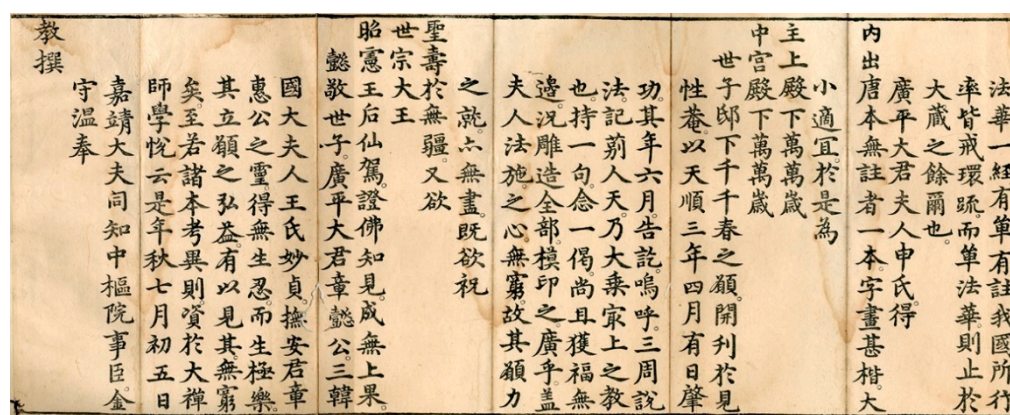 法華一經有單有註我國所行
率皆戒環䟽而單法華則止於
大蔵之餘爾也
廣平大君夫人申氏得
内出唐本無註者一本字畫甚楷大
小適宜於是為
主上殿下萬萬歳
中宫殿下萬萬歳
世子邸下千千春之願開刋於見
性菴以天順三年四月有日肇
功其年六月告訖嗚呼三周說
法記莂人天乃大乗㝡上之教
也持一句念一偈尚且獲福無
邉況雕造全部模印之廣乎盖
夫人法施之心無窮故其願力
之就亦無盡既欲祝
聖壽於無疆又欲
世宗大王
昭憲王后仙駕證佛知見成無上果
懿敬世子廣平大君章懿公三韓
國大夫人王氏妙貞撫安君章
惠公之靈得無生忍而生極樂
其立願之弘益有以見其無窮
矣至若諸本考異則資於大禪
師學悅云是年秋七月初五日
嘉靖大夫同知中樞院事臣金
守温奉
教撰